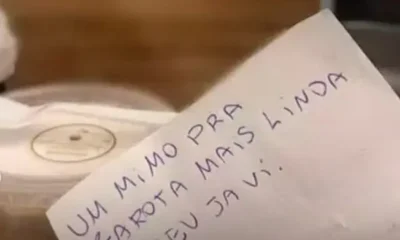 UM MIMO PRA
GAROTA MAIS LINDA
EU JA VI.